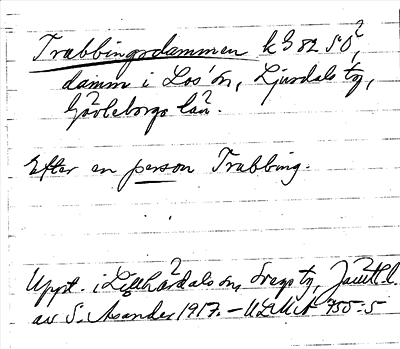 Trabbingsdammen k G 82 SO,
damm i Los' sn, Ljusdals tg,
Gävleborgs län.
Efter en person Trabbing.
Uppt. i Lillhärdals sn, Svegs tg, Jämtl. l.
av S. Asander 1917. – ULMA 455:5